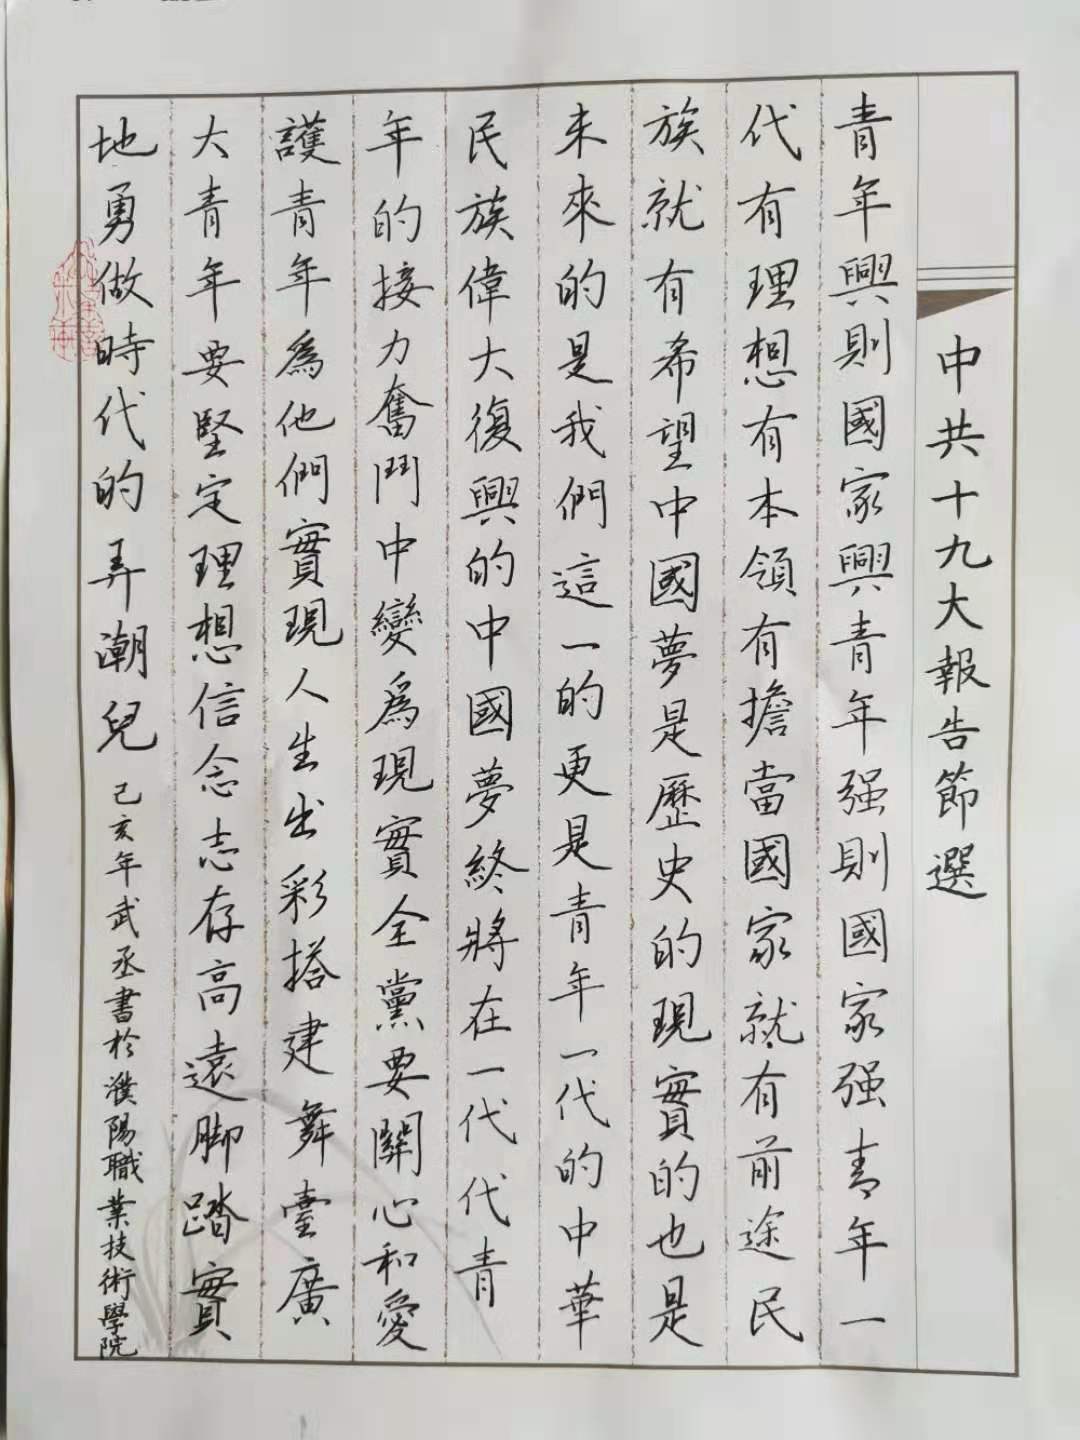 中共十九大報告節選
青年興則國家興青年强則國家强青年一
代有理想有本領有擔當國家就有前途民
族就有希望中國夢是歷史的現實的也是
未來的是我們這一的更是青年一代的中華
民族偉大復興的中國夢終將在一代代青
年的接力奮鬥中變爲現實全黨要關心和愛
護青年爲他們實現人生出彩搭建舞臺廣
大青年要堅定理想信念志存高遠脚踏實
地勇做時代的弄潮兒
己亥年武丞書於濮陽職業技術學院